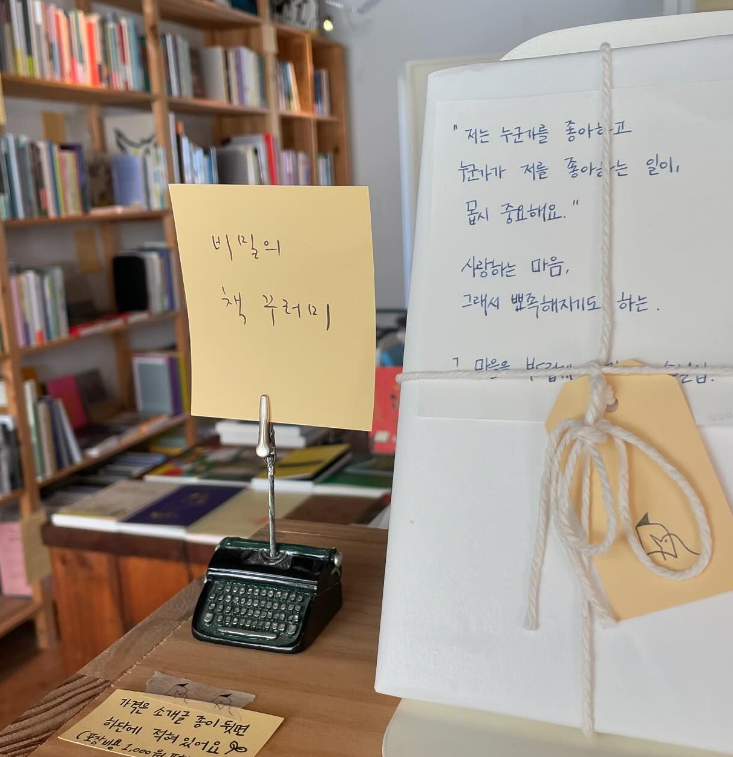 비밀의
책 꾸러미
"저는 누군가를 좋아하고
누군가가 저를 좋아하는 일이,
몹시 중요해요."
사랑하는 마음,
그래서 뾰족해지기도 하는.
그 마음을
가격은 소개글 종이 뒷면
하단에 적혀 있어요
(포장비용 1,000원